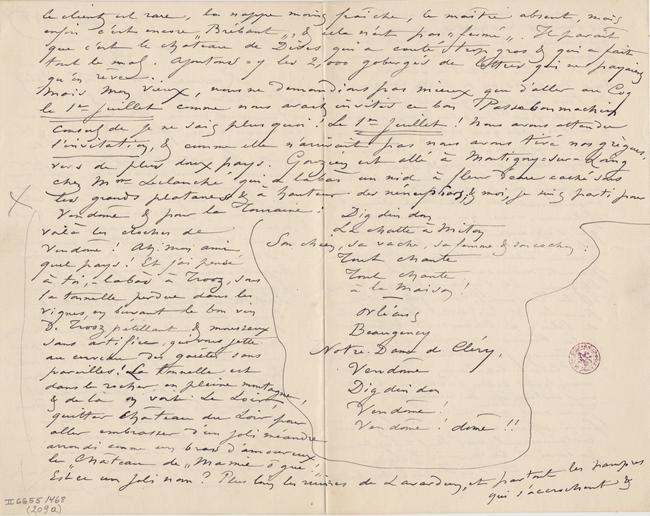 le client est rare, la nappe moins fraîche, le maître absent, mais
enfin c'est encore "Brébant", & cela n'est pas "fermé". Il paraît
que c'est le château de Dides qui a coûté trop gros & qui a fait
tout le mal. Ajoutons-y les 2,000 gobergés de lettres qui ne payaient
qu'en rêve!
Mais mon vieux, nous ne demandions pas mieux que d'aller au Coq
le 1er juillet comme nous avait invités ce bon Passebonmachin
consul de je ne sais plus quoi! Le 1er juillet! Nous avons attendu
l'invitation, & comme elle n'arrivait pas nous avons tiré nos grègues,
vers de plus doux pays. Gouzien est allé à Montigny-sur-Loing
chez Mme Leclanché qui a là-bas un nid à fleur d'eau caché sous
les grands platanes & à hauteur des nénuphars, & moi, je suis parti pour
Vendôme & pour la Touraine!
voilà les cloches de
Vendôme! Ah, mon ami
quel pays! Et j'ai pensé
à toi, à là-bas à Trooz, sous
la tonnelle perdue dans les
vignes, en buvant le bon vin
D. Trooz pétillant & mousseux
sans artifice, qui vous jette
au cerveau des gaietés sans
pareilles! La tonnelle est
dans le rocher, en pleine montagne,
& de là on voit le Loir
quitter Château du Loir pour
aller embrasser d'un joli méandre
arrondi comme un bras d'amoureux
le "Château de "Mamie o gué!"
Est-ce un joli nom? Plus loin les ruines de Lavardin, et partout les pampres
qui s'accrochent &
Dig din don
La chatte à Miton
Son chien, sa vache, sa femme & son cochon:
Tout chante
Tout chante
à la Maison!
Orléans
Beaugency
Notre-Dame de Cléry,
Vendôme
Dig din don
Vendôme!
Vendôme! dôme!!
II 6655/468
(209a)